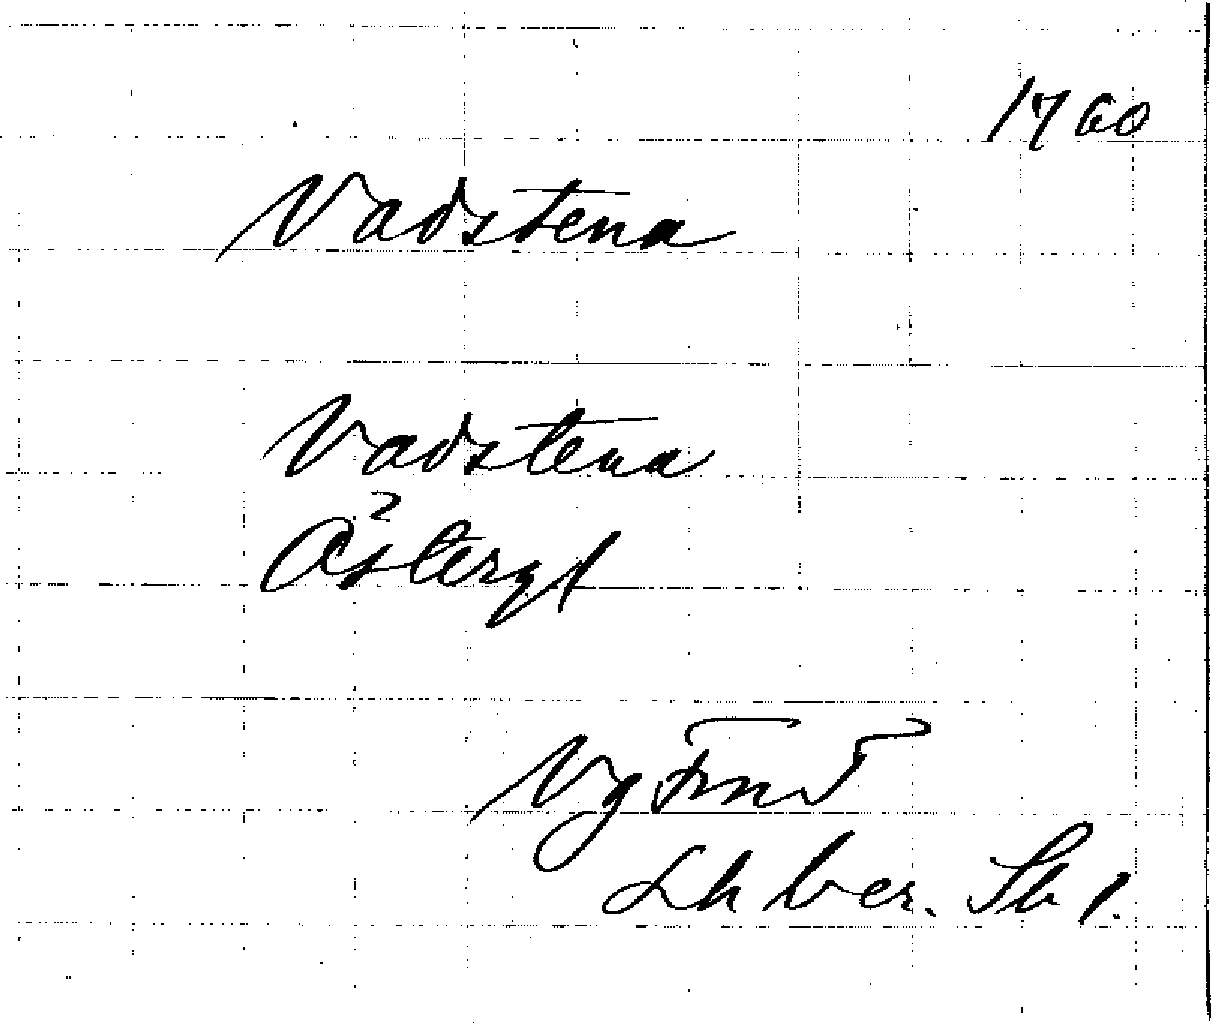 1760
Vadstena
Vadstena
Östergl
Vg Fmd
Lh ber. Sb 1.